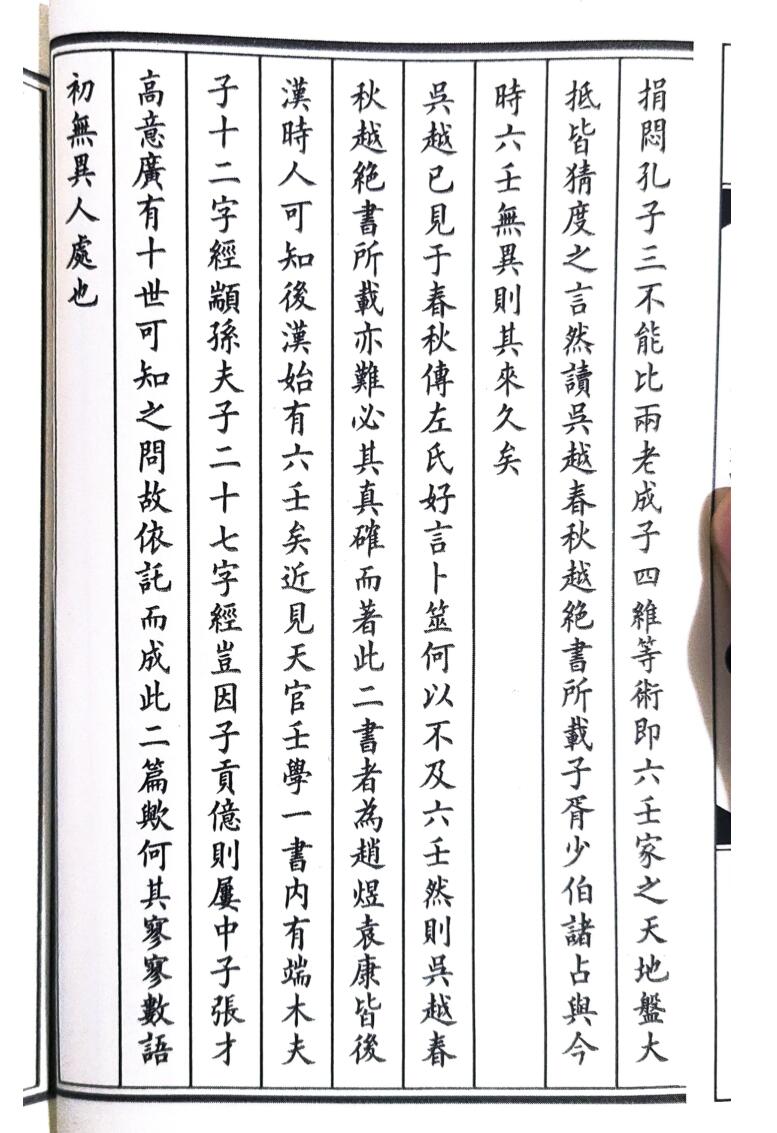 捐悶孔子三不能比兩老成子四維等術即六壬家之天地盤大
抵皆猜度之言然讀吳越春秋越絶書所載子胥少伯諸占與今
時六壬無異則其來久矣
吳越已見于春秋傳左氏好言卜筮何以不及六壬然則吳越春
秋越絶書所載亦難必其真確而著此二書者為趙煜袁康皆後
漢時人可知後漢始有六壬矣近見天官壬學一書内有端木夫
子十二字經顓孫夫子二十七字經豈因子貢億則屢中子張才
高意廣有十世可知之問故依託而成此二篇歟何其寥寥數語
初無異人處也